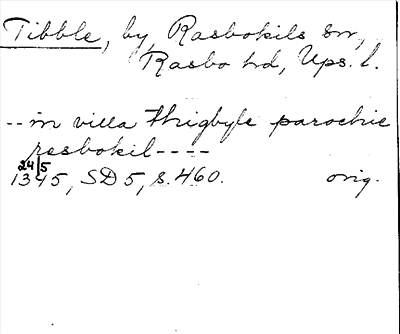 Tibble, by, Rasbokils sn,
Rasbo hd, Ups. l.
-- in villa thigbyle parochie
resbokil ----
24/5
1345, SD 5, s. 460. orig.